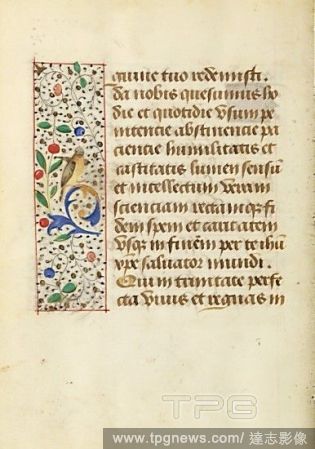 guine tuo redemisti.
da nobis quesumus ho
die et quotidie usum pe
nitencie abstinencie pa
ciencie humilitatis et
castitatis lumen sensum
et intellectum veram
scienciam rectamque fi
dem spem et caritatem
usque in finem per te ihu
xpe salvator mundi.
Qui in trinitate perfe
cta vivis et regnas in
TPG
www.tpgnews.com/ 達志影像